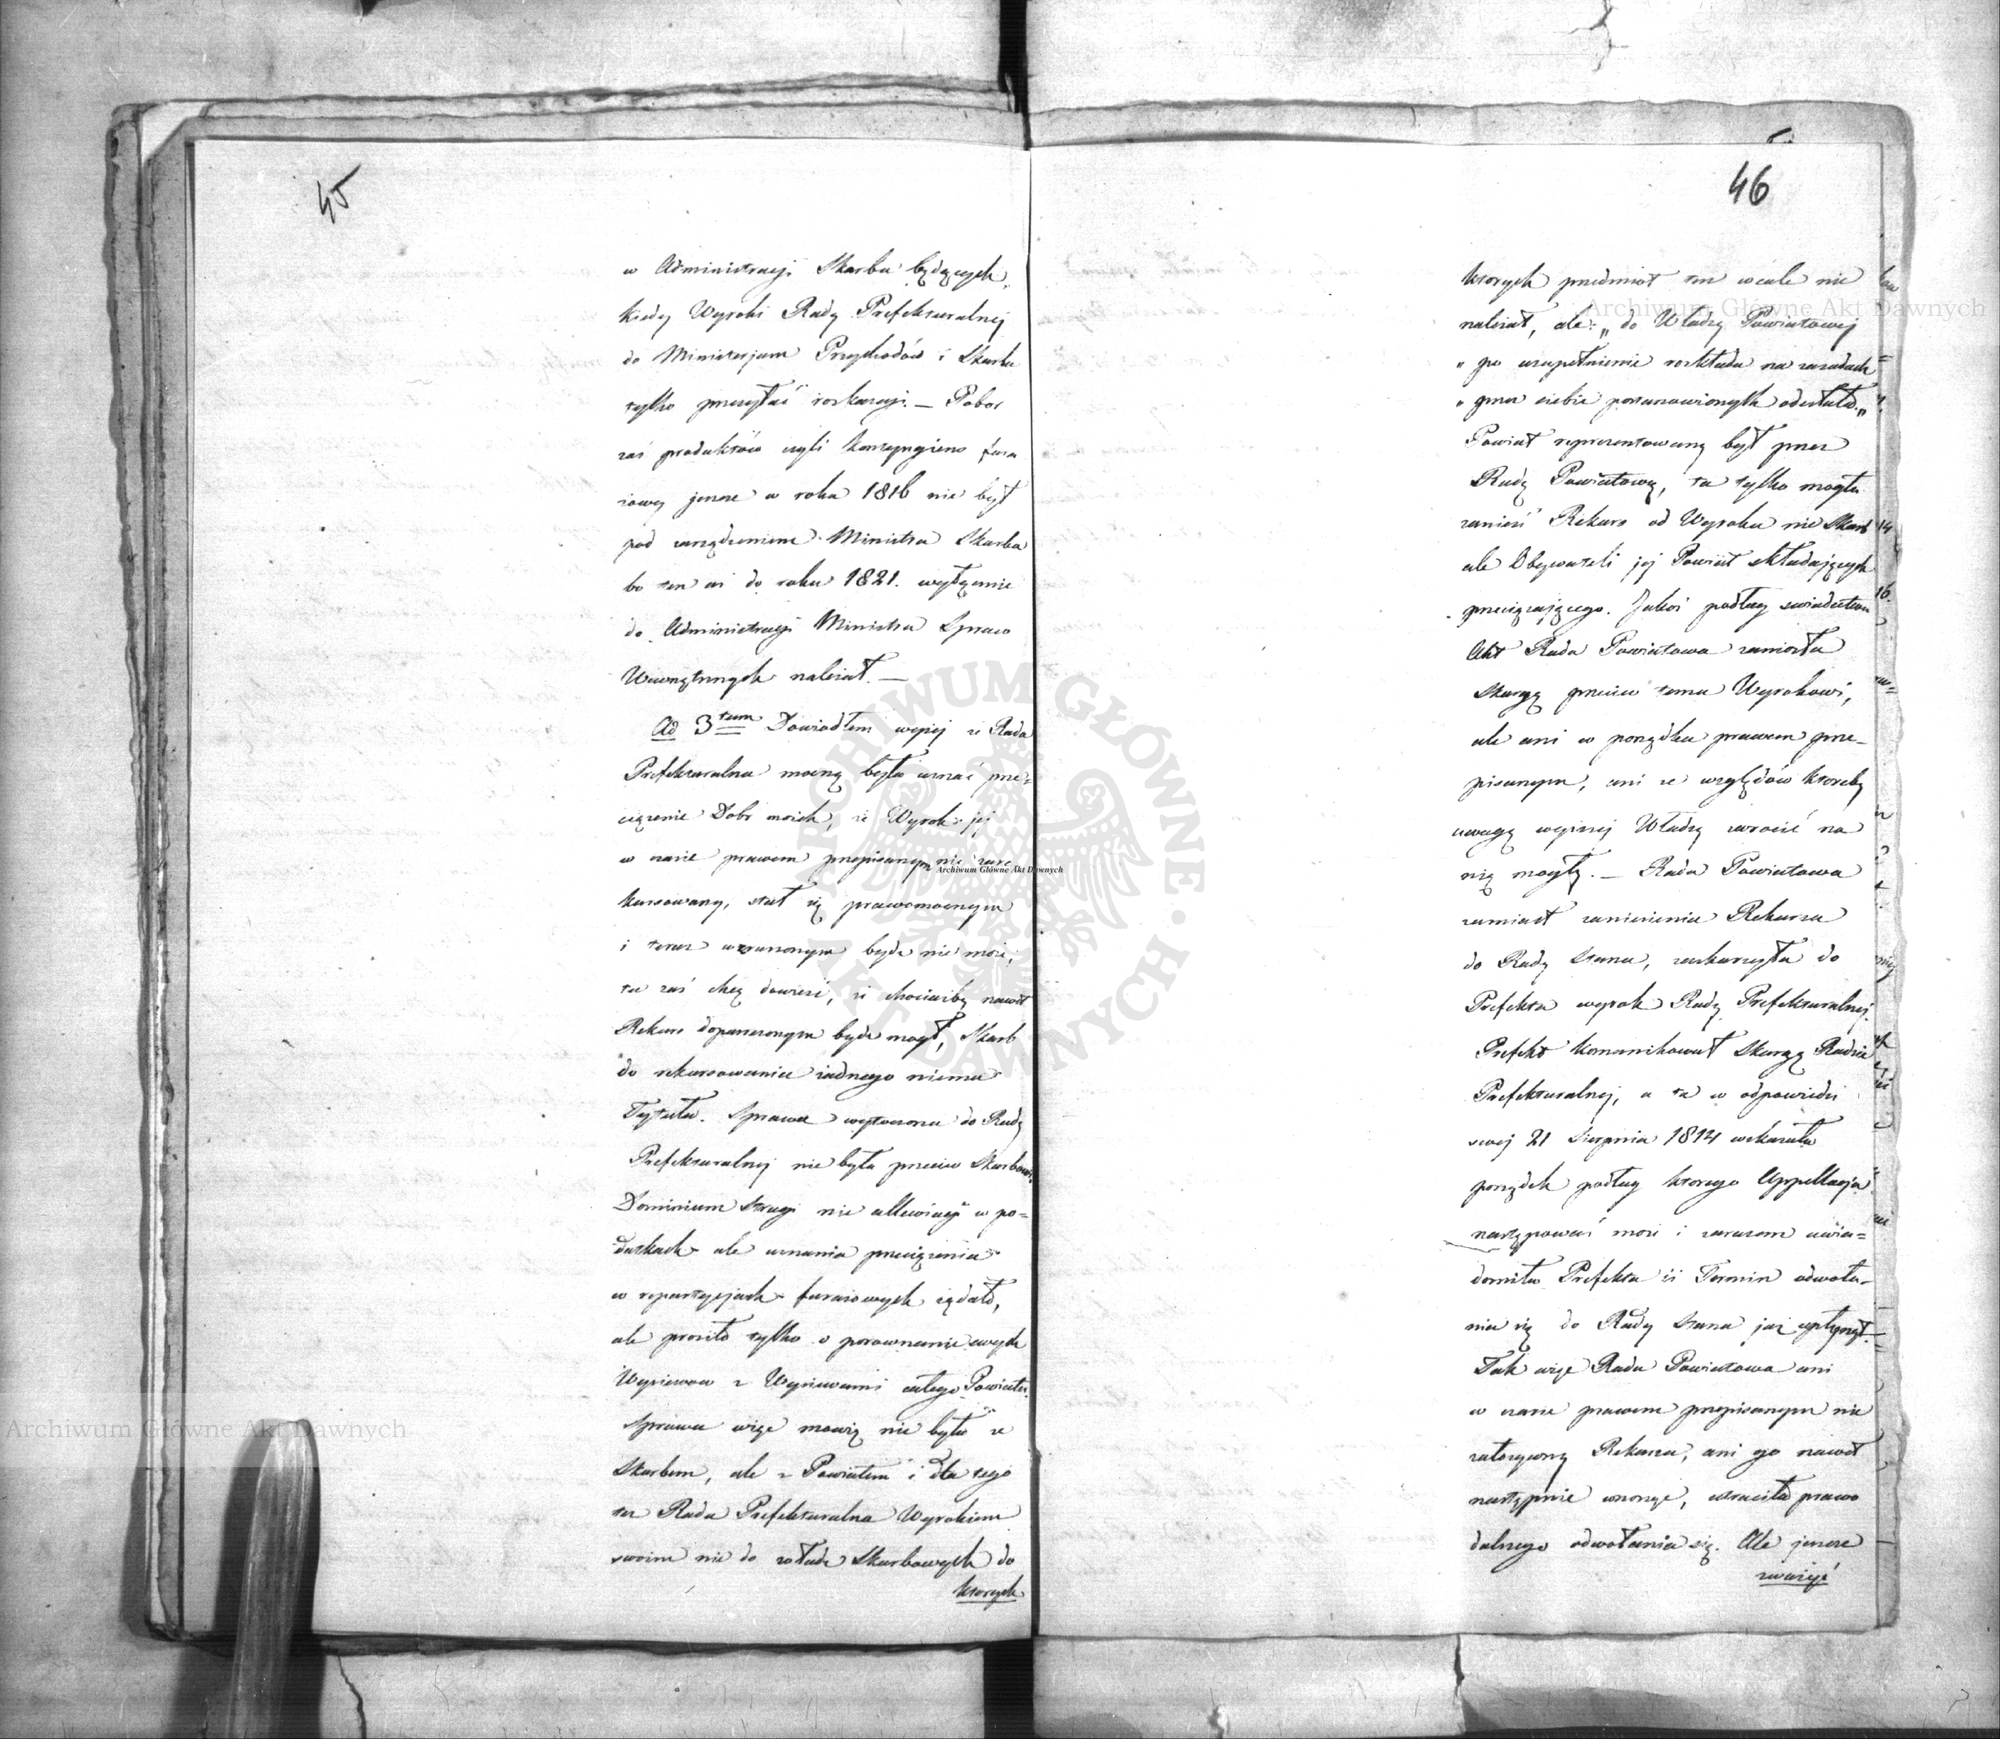 45
w Administracji Skarbu będących,
kiedy Wyroki Rady Prefekturalnej
do Ministerjum Przychodów i Skarbu
tylko przesyłać roskazuje. — Pobor
zaś produktów czyli konsyngiens fura
żowy jeszcze w roku 1816 nie był
pod zarządzeniem Ministra Skarbu
bo ten aż do roku 1821. wyłącznie
do Administracji Ministra Spraw
Wewnętrznych należał. —
Ad 3tum Dowiodłem wyżej że Rada
Prefekturalna mocną była uznać prze=
ciążenie Dobr moich, że Wyrok jej
w czasie prawem przepisanym nie zare
kursowany, stał się prawomocnym
i teraz wzruszonym bydź nie może,
tu zaś chcę dowieść, że chociażby nawet
Rekurs dopuszczonym bydź mogł, Skarb
do rekursowania żadnego niema
Tytułu. Sprawa wytoczona do Rady
Prefekturalnej nie była przeciw Skarbowi,
Dominium Strugi nie allewiacji w po=
datkach ale uznania przeciążenia
w repartycjach furażowych żądało,
ale prosiło tylko o porownanie swych
Wysiewow z Wysiewami całego Powiatu.
Sprawa więc mowię nie była ze
Skarbem, ale z Powiatem i dla tego
też Rada Prefekturalna Wyrokiem
swoim nie do władz Skarbowych do
ktorych
46
ktorych przedmiot ten wcale nie
należał, ale: „do Władzy Powiatowej
„ po uzupełnienie rozkładu na zasadach
„ przez siebie postanowionych odesłała.„
Powiat reprezentowany był przez
Radę Powiatową, ta tylko mogła
zanieść Rekurs od Wyroku nie Skarb
ale Obywateli jej Powiat składających
przeciążającego. Jakoż podług swiadectwa
Akt Rada Powiatowa zaniosła
Skargę przeciw temu Wyrokowi,
ale ani w porządku prawem prze=
pisanym, ani ze względów ktoreby
uwagę wyższej Władzy zwrocić na
nię mogły. — Rada Powiatowa
zamiast zaniesienia Rekursu
do Rady Stanu, zaskarzyła do
Prefekta wyrok Rady Prefekturalnej.
Prefekt kommunikował Skargę Radzie
Prefekturalnej, a ta w odpowiedzi
swej 21 Sierpnia 1814 wskazała
porządek podług ktorego Appellacja
następować może i zarazem uwia=
domiła Prefekta iż Termin odwoła=
nia się do Rady Stanu już upłynął.
Tak więc Rada Powiatowa ani
w czasie prawem przepisanym nie
założywszy Rekursu, ani go nawet
następnie wnosząc, utraciła prawo
dalszego odwołania się. Ale jeszcze
zważyć
Archiwum Główne Akt Dawnych
Archiwum Główne Akt Dawnych
Archiwum Główne Akt Dawnych
ARCHIWUM GŁÓWNE AKT DAWNYCH